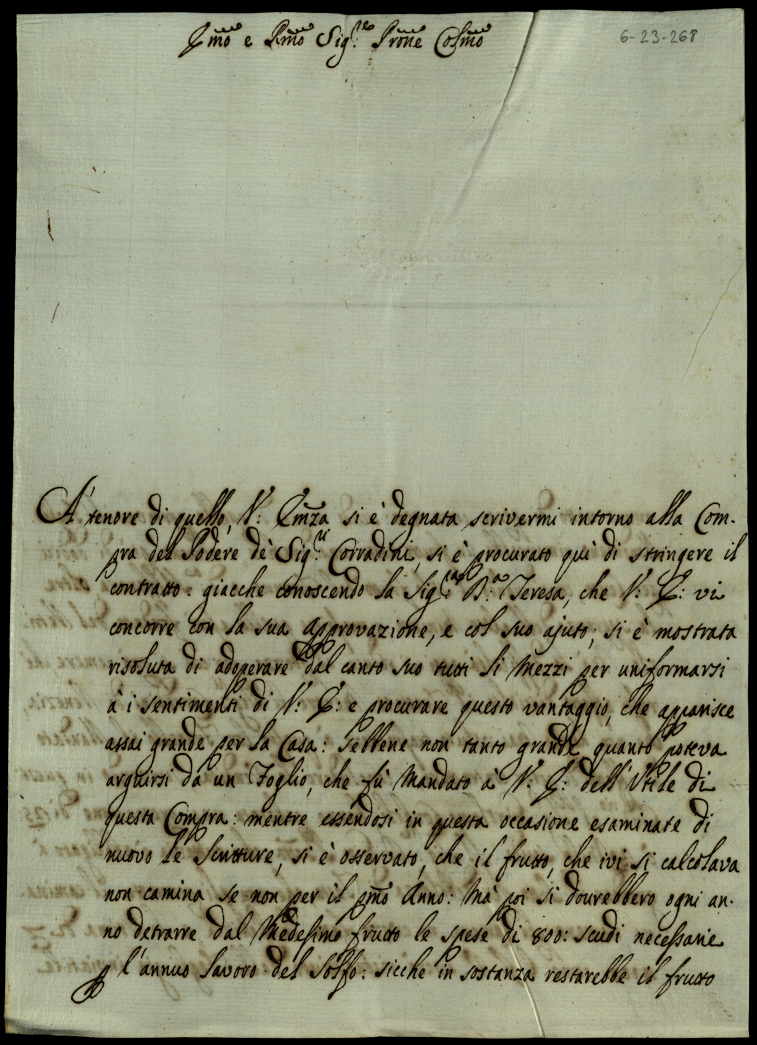 Ill̃mo e Rm̃o Sig.re Prõne Colm̃o
6-23-268
A' tenore di quello, V: Em̃za si è degnata scrivermi intorno alla Com-
pra del Podere dè Sig.ri Corradini, si è procurato quì di stringere il
contratto: giacche conoscendo la Sig.ra B:a Teresa, che V: E: vi
concorre con la sua approvazione, e col suo ajuto; si è mostrata
risoluta di adoperare dal canto suo tutti li mezzi per uniformarsi
à i sentimenti di V: E: e procurare questo vantaggio, che apparisce
assai grande per la Casa: sebbene non tanto grande quanto poteva
arguirsi da un Foglio, che fù mandato à V: E: dell'Utile di
questa Compra: mentre essendosi in questa occasione esaminate di
nuovo le Scritture, si è osservato, che il frutto, che ivi si calcolava
non camina se non per il pm̃o Anno: Mà poi si dourebbero ogni an-
no detrarre dal Medesimo frutto le spese di 800: scudi necessarie
p l'annuo lavoro del Solfo: sicche in sostanza restarebbe il frutto